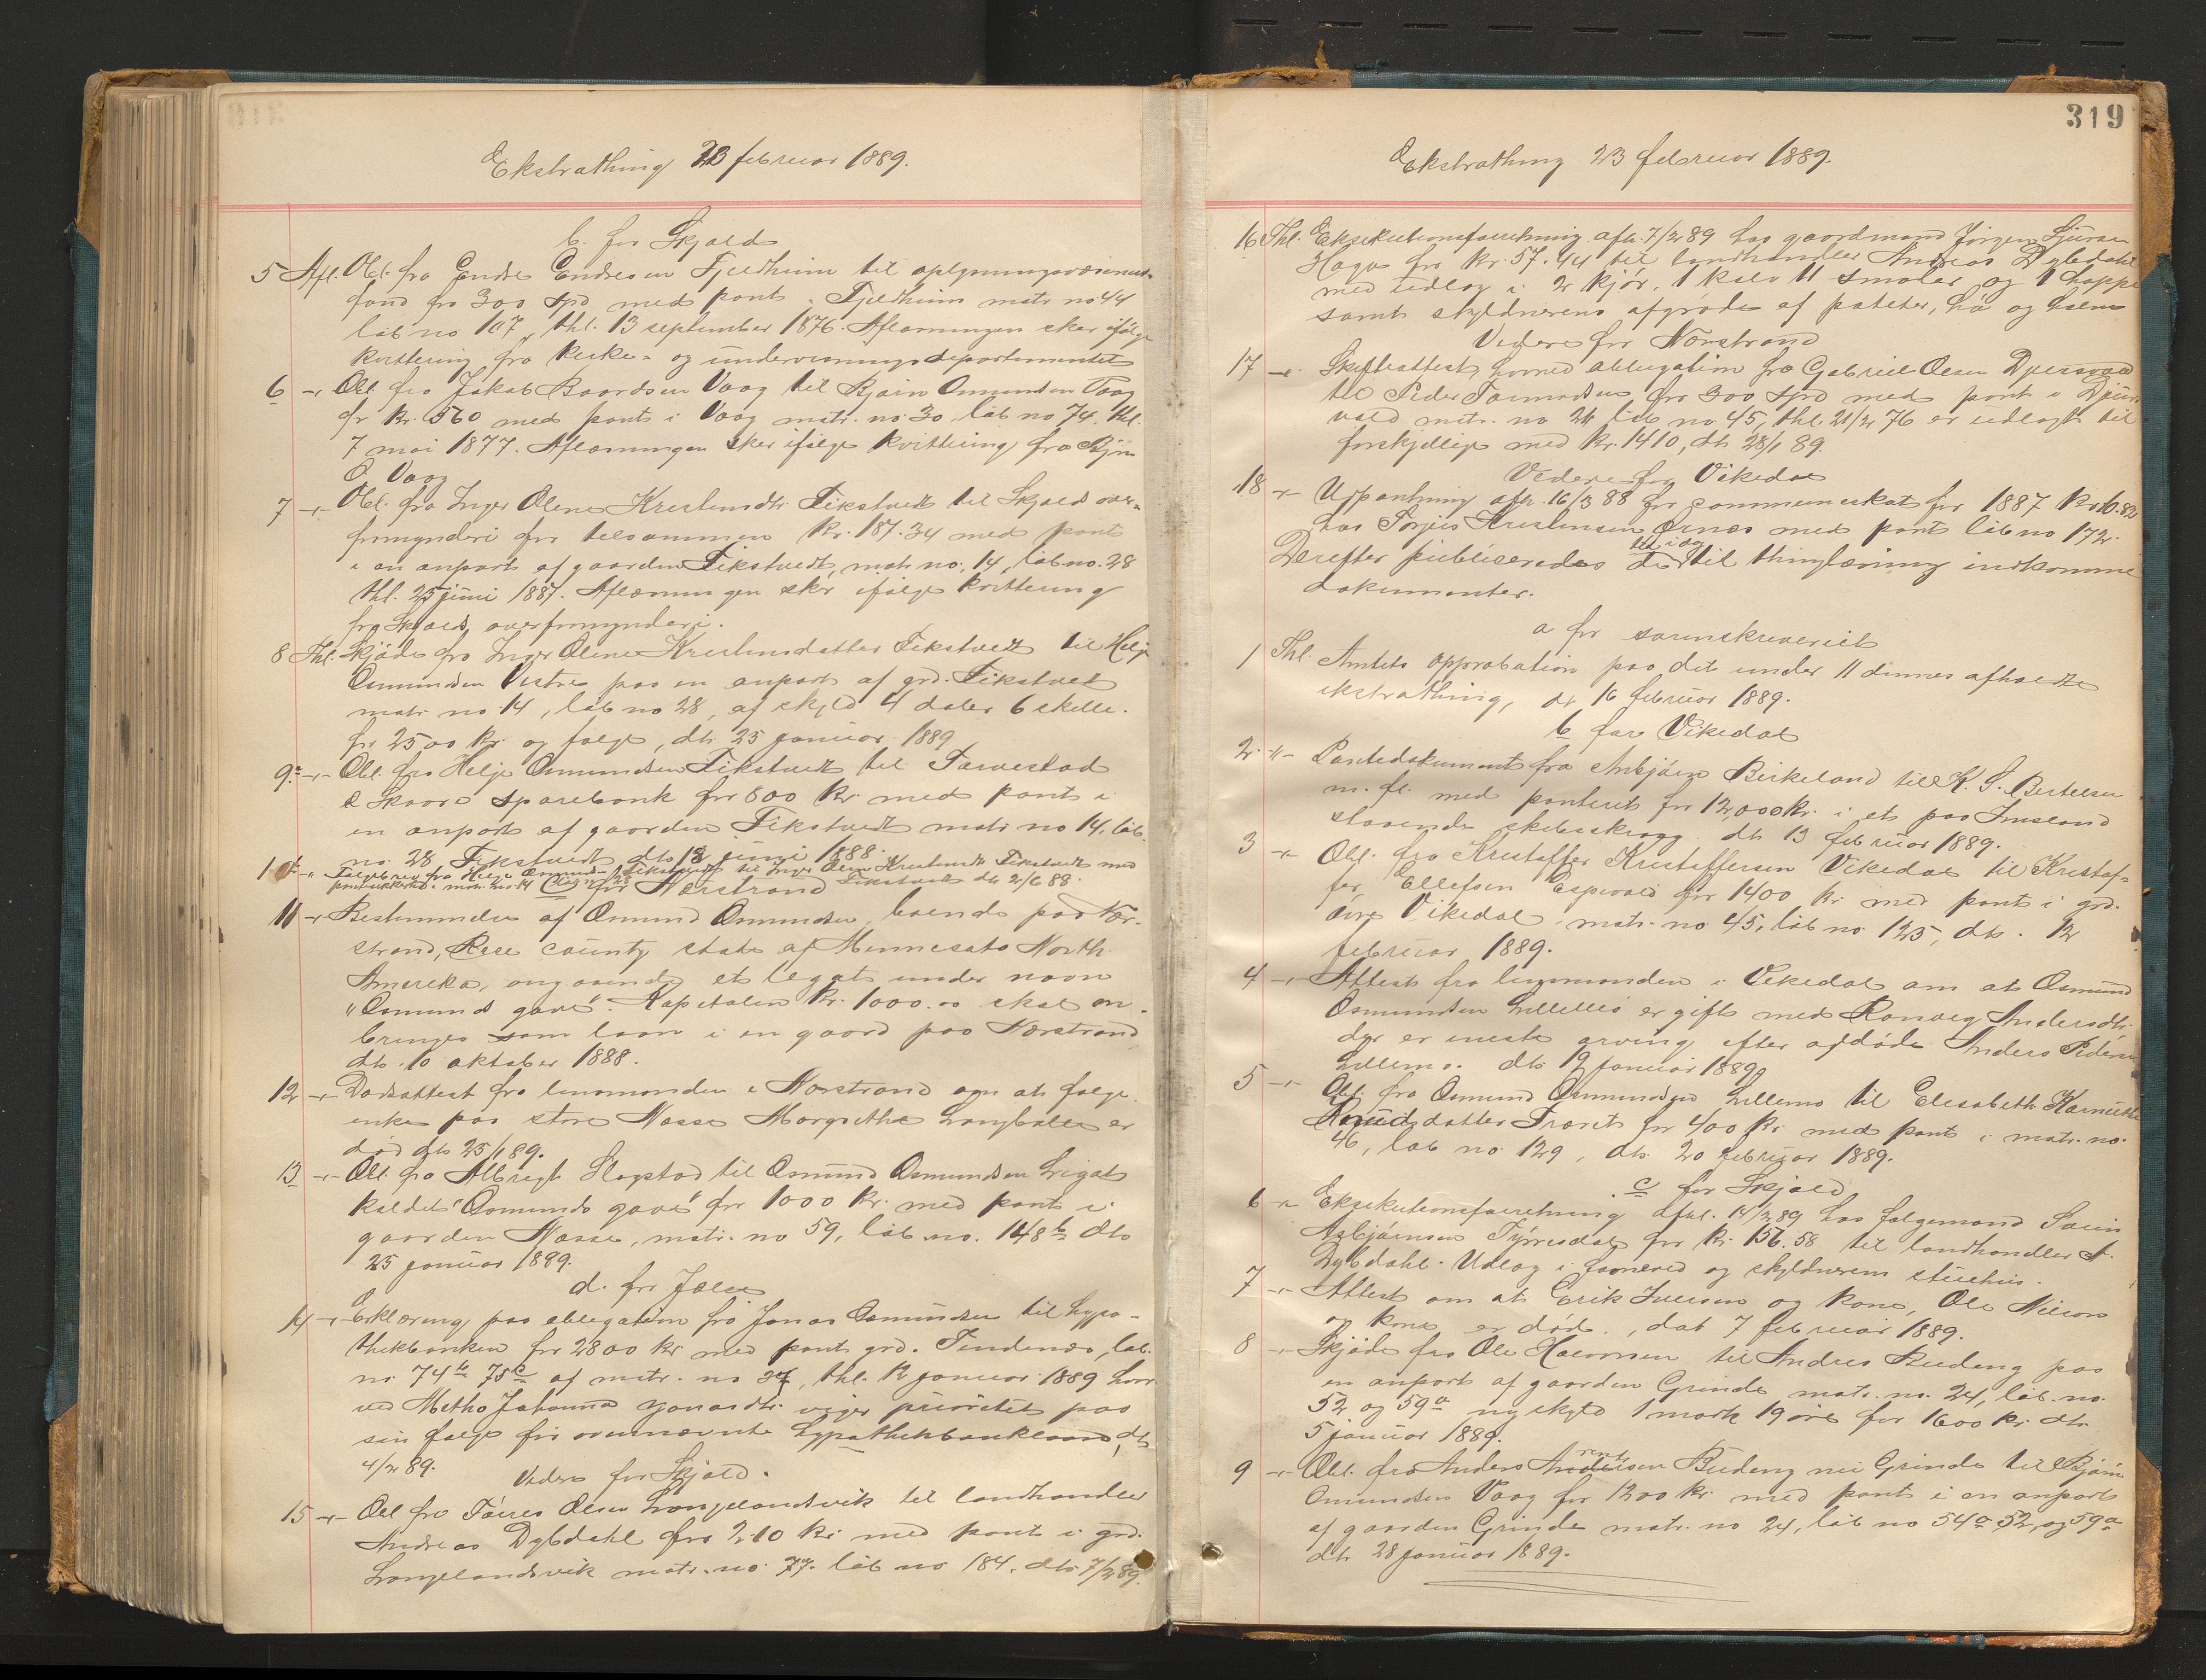 Ekstrathing 23 februar 1889.
b. for Skjold
5 Afl. Obl. fra Endre Endresen Fjeldheim til oplysningsvæsenets
fond for 300 spd med pant i Fjeldheim matr no 44
løb no 107, thl. 13 september 1876. Aflæsningen sker ifølge
kvittering fra kirke- og undervisningsdepartementet
6 -"- Obl. fra Jakob Baardsen Vaag til Bjørn Omundsen Vaag
for kr. 560 med pant i Vaag matr. no 30 løb no 74, thl.
7 mai 1877. Aflæsningen sker ifølge kvittering fra Bjørn
O. Vaag
7 -"- Obl. fra Inger Olene Krestensdtr. Tikstvedt til Skjold over-
formynderi for tilsammen kr. 187.34 med pant
i en anpart af gaarden Tikstvedt, matr. no. 14, løb no. 28
thl. 25 juni 1887. Aflæsningen sker ifølge kvittering
fra Skjold overformynderi.
8 Thl. Skjøde fra Inger Olene Krestensdatter Tikstvedt til Helje
Omundsen Vestre paa en anpart af grd. Tikstvedt
matr no 14, løb no 28, af skyld 4 daler 6 skill.
for 2500 kr og følge, dt. 25 januar 1889
9 -"- Obl. fra Helje Omundsen Tikstvedt til Torvestad
& Skaare sparebank for 800 kr. med pant i
en anpart af gaarden Tikstvedt matr no 14, løb
no. 28 Tikstvedt dt. 18 juni 1888.
10 -"- Følgebrev fra Helje Omundsen Tikstvedt til Inger Olene Krestensdt. Tikstvedt med
pantsikkerhed i matr. no 14 løb no 28 Tikstvedt dt 2/6 88.
c for Nærstrand
11 -"- Bestemmelse af Omund Omundsen, boende paa Nær-
strand, Rice county state of Minnesota North
Amerika, angaaende et legat under navn
"Omunds gave". Kapitalen kr. 1000.00 skal an-
bringes som laan i en gaard paa Nærstrand
dt. 10 oktober 1888.
12 -"- Dødsattest fra lensmanden i Nærstrand om at følge-
enke paa store Hasse Margrethe Langballe er
død dt 25/1 89.
13 -"- Obl. fra Albregt Slogstad til Omund Omundsen Legat
kaldet "Omunds gave" for 1000 kr. med pant i
gaarden Hasse, matr. no 59, løb no. 148 b dt.
25 januar 1889.
d. for Jælsø
14 -"- Erklæring paa obligation fra Jonas Omundsen til hypo-
thekbanken for 2800 kr med pant grd. Tindenæs, løb.
no 74 b 75 c af matr. no 27, thl. 12 januar 1889 hvor
ved Metha Johanna Jonasdtr. viger prioritet paa
sin følge for ovennævnte hypothekbanklaan, dt.
4/2 89.
Videre for Skjold.
15 -"- Obl fra Tørres Olsen Langelandsvik til landhandler
Andreas Dybdahl for 210 kr med pant i grd.
Langelandsvik matr. no. 77 løb no 184, dt. 7/2 89.
319
Ekstrathing 23 februar 1889.
16 Thl. Eksekutionsforretning afh. 7/2 89 hos gaardmand Jørgen Sjursen
Haga for kr. 57.44 til landhandler Andreas Dybdahl
med udlæg i 2 kjør, 1 kalv 11 smaler og 1 hoppe
samt skyldnerens afgrøde af poteter, hø og halm
Videre for Nærstrand
17 -"- Skifteattest hvorved obligation fra Gabriel Olsen Djursvold
til Peder Tormodsen for 300 spd med pant i Djurs
vold matr. no 24 løb no 45, thl. 21/2 76 er udlagt til
forskjellige med kr. 1410, dt 28/1 89.
Videre for Vikedal
18 -"- Udpantning afh. 16/3 88 for communeskat for 1887 kr 10.82
hos Torjus Krestensen Ørnes med pant løb no 172.
Derefter publiceredes de til idag til thinglæsning indkomne
dokumenter.
a for sorenskriveriet
1 Thl. Amtets approbation paa det under 11 dennes afholdte
ekstrathing, dt 16 februar 1889.
b for Vikedal
2 -"- Pantedokument fra Anbjørn Birkeland till K. G. Bertelsen
m. fl. med panteret for 12,000 kr. i et paa Imsland
staaende skibsskrog dt 13 februar 1889.
3 -"- Obl. fra Kristoffer Kristoffersen Vikedal til Kristof-
fer Ellefsen Espevold for 1400 kr. med pant i grd.
øvre Vikedal matr. no 45, løb no 125, dt. 12
februar 1889.
4 -"- Attest fra lensmanden i Vikedal om at Osmund
Osmundsen Lillemo er gift med Ranveig Andersdtr.
der er eneste arving efter afdøde Anders Pedersen
Lillemo. dt. 19 januar 1889.
5 -"- Obl. fra Osmund Osmundsen Lillemo til Elisabeth
Knudsdatter for 400 kr med pant i matr. no.
46, løb no. 129, dt. 20 februar 1889.
c for Skjold
6 -"- Eksekutionsforretning afhl. 14/2 89 hos følgemand Svein
Asbjørnsen Tyrresdal for kr. 136.58 til landhandler A.
Dybdahl. Udlæg i og skyldnerens stuehus.
7 -"- Attest om at Erik Iversen og kone, Ole Nilson
og kone er døde., dat 7 februar 1889.
8 -"- Skjøde fra Ole Halvorsen til Andres Budeng paa
en anpart af gaarden Grinde matr. no. 24, løb no.
52 og 59 a ny skyld 1 mark 19 øre for 1600 kr. dt.
5 januar 1889.
9 -"- Obl. fra Anders Andersen Budeng nu Grinde til Bjørn
Omundsen Vaag for 1200 kr. med pant i en anpart
af gaarden Grinde matr. no 24, løb no 54 a 52, og 59 a
dt. 28 januar 1889.